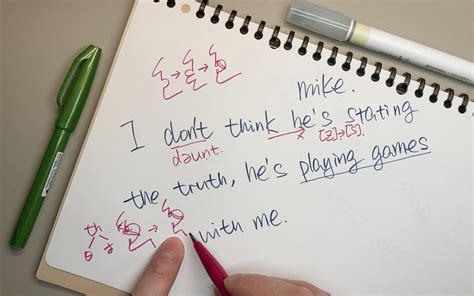 mike.
I don't think he's stating
daunt. x [z]→[s].
the truth, he's playing games
th
with me.